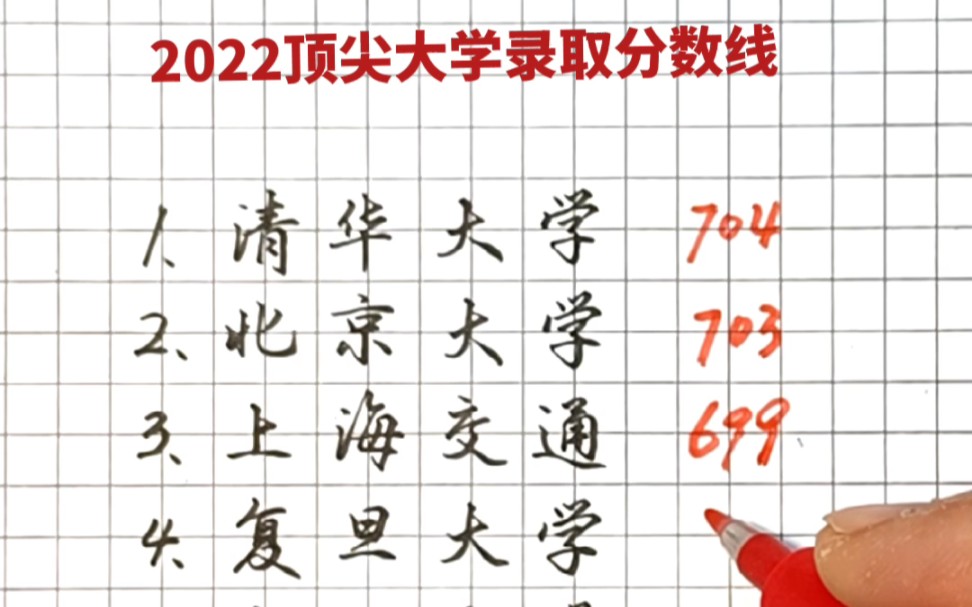 2022顶尖大学录取分数线
1、清华大学 704
2、北京大学 703
3、上海交通 699
4、复旦大学